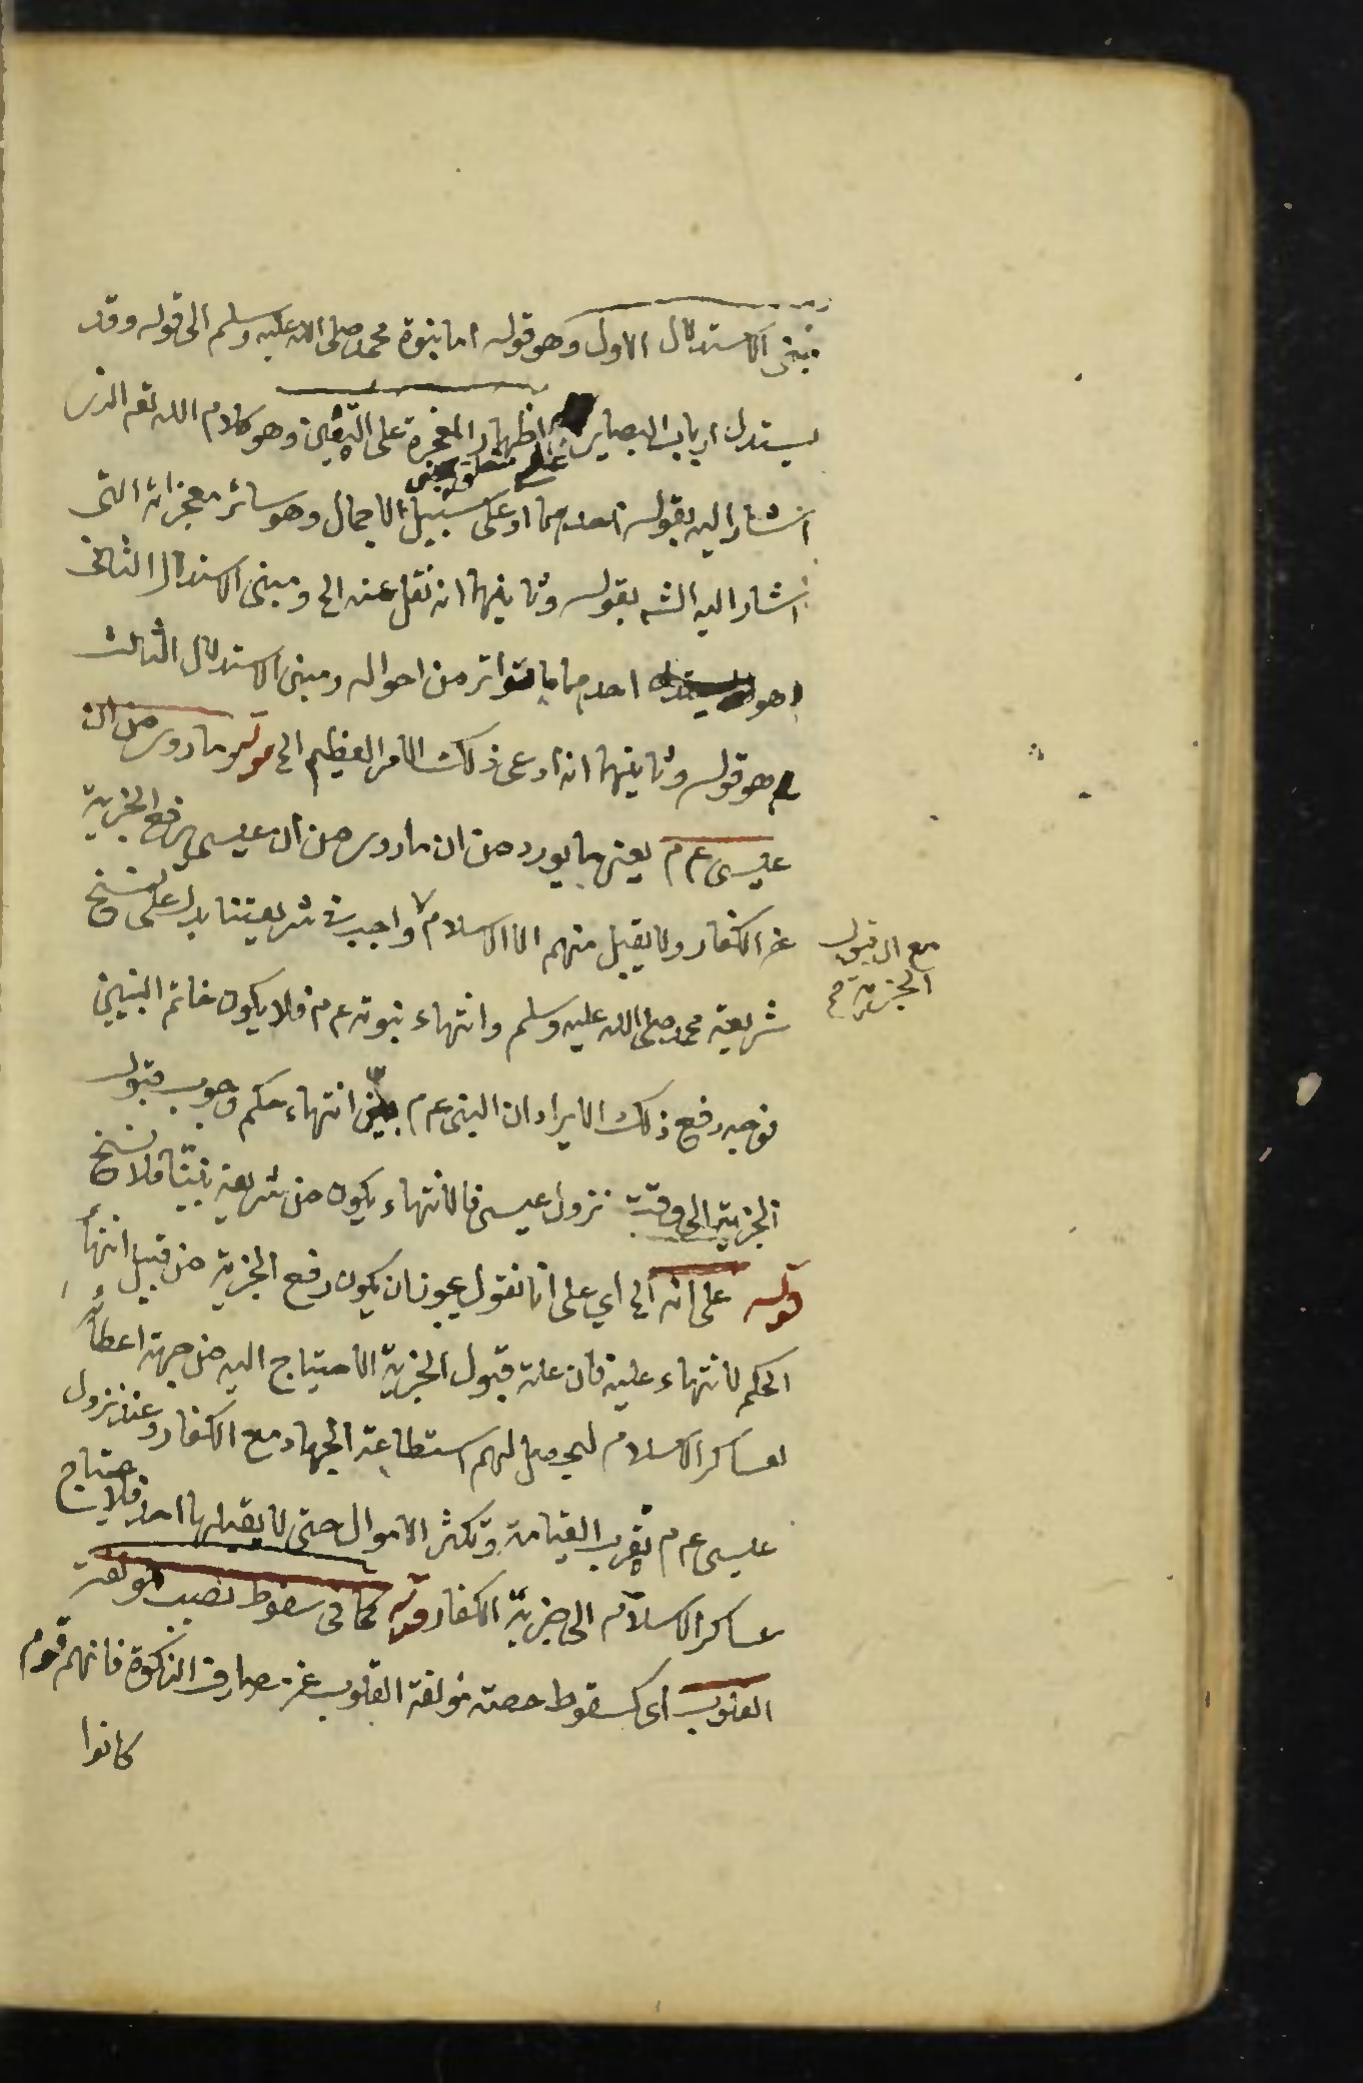 مبنى الاستدلال الاول وهو قوله اما نبوة محمد صلى الله عليه وسلم الى قوله وقد
يستدل ارباب البصاير اظهار المعجزة على التعيين وهو كلام الله تعم الذى
على متعلق مبنى
اشار اليه بقوله احدهما او على سبيل الاجمال وهو سائر معجزاته التى
اشار اليه الشه بقوله وثانيهما انه نقل عنه الخ ومبنى الاستدلال الثانى
هو احدهما ما تواتر من احواله ومبنى الاستدلال الثالث
هو قوله وثانيهما انه ادعى ذلك الامر العظيم الخ قوله وما روى من ان
عيسى عم م يعنى ما يورد من ان ما روى من ان عيسى يرفع الجزية
عن الكفار ولا يقبل منهم الا الاسلام ٧ واجب فى شريعتنا يدل على نسخ
مع ان قبول
الجزية صح
شريعة محمد صلى الله عليه وسلم وانتهاء نبوته عم م فلا يكون خاتم النبيين
توجيه دفع ذلك الايراد ان النبى عم م بيّن انتهاء حكم وجوب قبول
الجزية الى وقت نزول عيسى فالانتهاء يكون من شريعة نبيّنا فلا نسخ
قوله على انه الخ اي على انا نقول يجوز ان يكون رفع الجزية من قبيل انتهاء
الحكم لانتهاء علته فان علة قبول الجزية الاحتياج اليه من جهة اعطائه
لعساكر الاسلام ليحصل لهم استطاعة الجهاد مع الكفار وعند نزول
عيسى عم م تقرب القيامة وتكثر الاموال حتى لا يقبلها احد فلا يحتاج
عساكر الاسلام الى جزية الكفار قوله كما فى سقوط نصيب مؤلفة
القلوب اى كسقوط حصته مؤلفة القلوب عن مصارف الزكوة فانهم قوم
كانوا